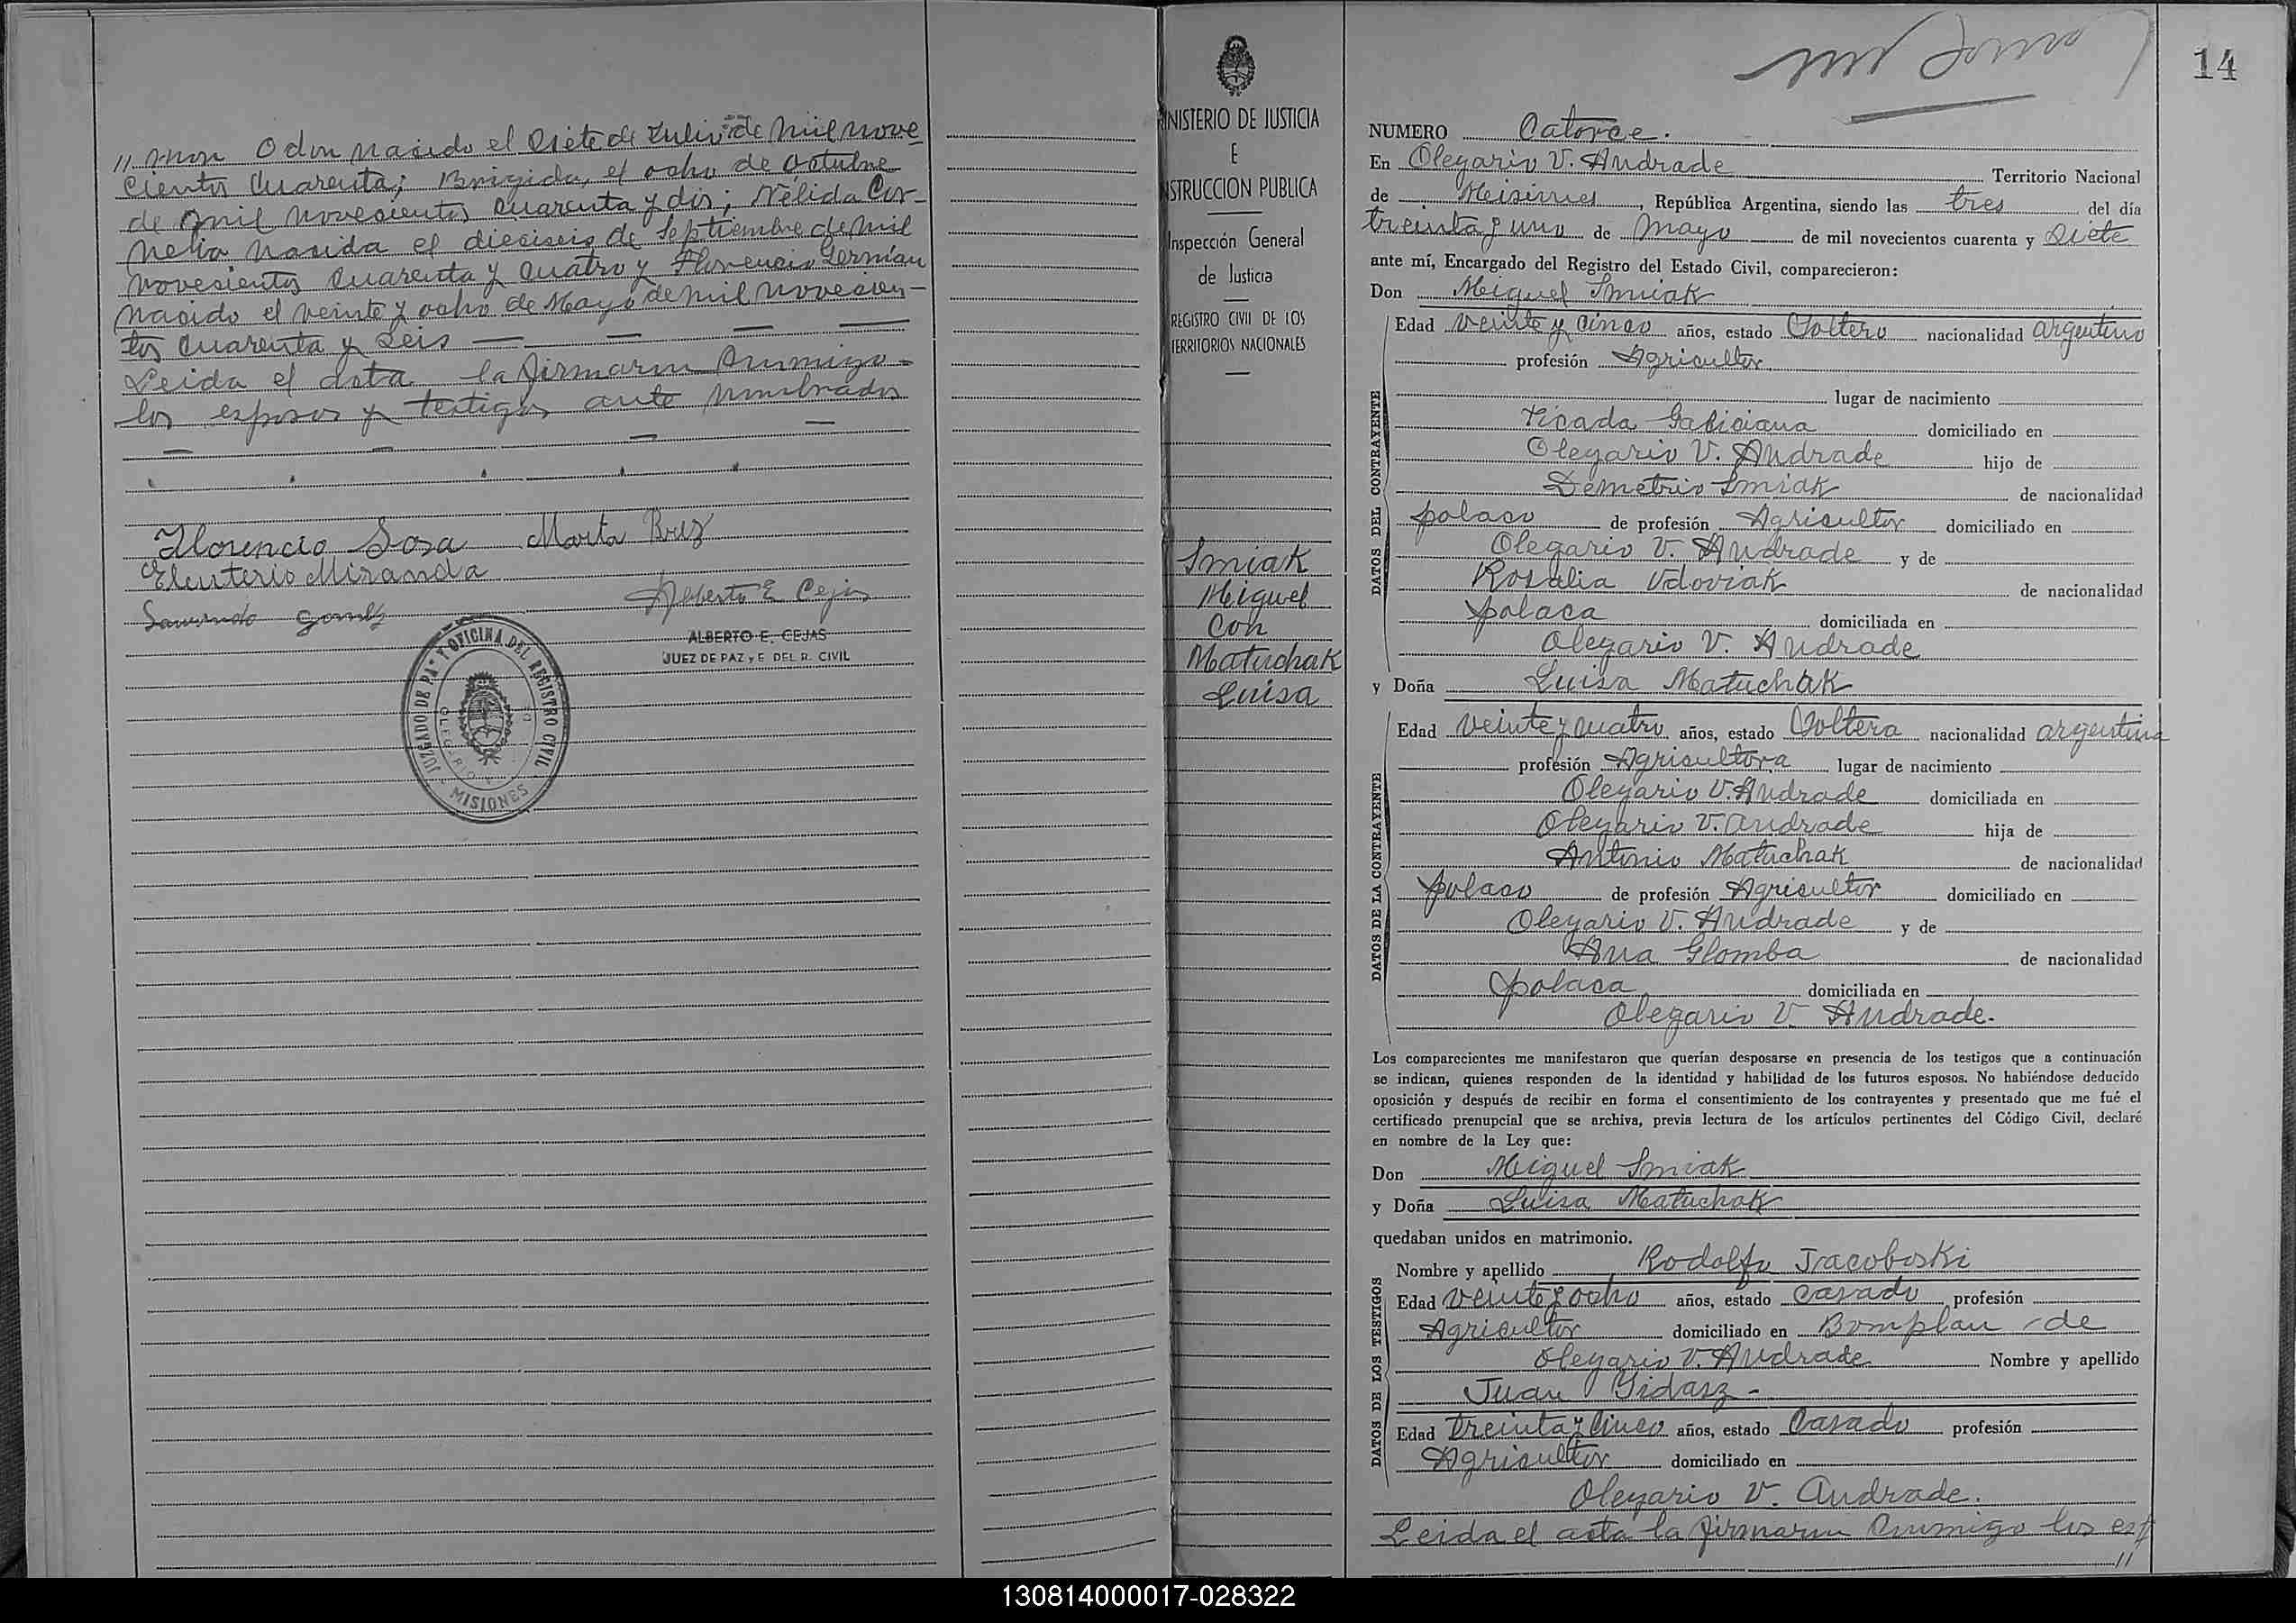 // mon Odon nacido el Siete de Julio de Mil nove
cientos Cuarenta; Brigida, el ocho de Octubre
de Mil novecientos Cuarenta y dos; Nélida Cor-
nelia nacida el dieciseis de Septiembre de Mil
novecientos Cuarenta y Cuatro y Florencio Germán
nacido el veinte y ocho de Mayo de Mil novecien-
tos Cuarenta y Seis — — — —
Leida el acta, la firmaron Conmigo
los esposos y testigos ante nombrados
Florencio Sosa Marta Baez
Eleuterio Miranda
Gomez
Alberto E Cejas
ALBERTO E. CEJAS
JUEZ DE PAZ y E. DEL R. CIVIL
JUZGADO DE PAZ Y OFICINA DEL REGISTRO CIVIL
MISIONES
NISTERIO DE JUSTICIA
E
NSTRUCCION PUBLICA
Inspección General
de Justicia
REGISTRO CIVIL DE LOS
TERRITORIOS NACIONALES
Smiak
Miguel
Con
Matuchak
Luisa
14
NUMERO Catorce.
En Olegario V. Andrade Territorio Nacional
de Misiones, República Argentina, siendo las tres del día
treinta y uno de Mayo de mil novecientos cuarenta y Siete
ante mí, Encargado del Registro del Estado Civil, comparecieron:
Don Miguel Smiak
DATOS DEL CONTRAYENTE
Edad Veinte y Cinco años, estado Soltero nacionalidad argentino
profesión Agricultor
lugar de nacimiento
Picada Galiciana domiciliado en
Olegario V. Andrade hijo de
Demetrio Smiak de nacionalidad
polaco de profesión Agricultor domiciliado en
Olegario V. Andrade y de
Rosalia Vdoviak de nacionalidad
polaca domiciliada en
Olegario V. Andrade
y Doña Luisa Matuchak
DATOS DE LA CONTRAYENTE
Edad Veinte y Cuatro años, estado Soltera nacionalidad argentina
profesión Agricultora lugar de nacimiento
Olegario V. Andrade domiciliada en
Olegario V. Andrade hija de
Antonio Matuchak de nacionalidad
polaco de profesión Agricultor domiciliado en
Olegario V. Andrade y de
Ana Glomba de nacionalidad
polaca domiciliada en
Olegario V. Andrade.
Los comparecientes me manifestaron que querían desposarse en presencia de los testigos que a continuación
se indican, quienes responden de la identidad y habilidad de los futuros esposos. No habiéndose deducido
oposición y después de recibir en forma el consentimiento de los contrayentes y presentado que me fué el
certificado prenupcial que se archiva, previa lectura de los artículos pertinentes del Código Civil, declaré
en nombre de la Ley que:
Don Miguel Smiak
y Doña Luisa Matuchak
quedaban unidos en matrimonio.
DATOS DE LOS TESTIGOS
Nombre y apellido Rodolfo Jracoboski
Edad Veinte y ocho años, estado Casado profesión
Agricultor domiciliado en Bomplan de
Olegario V. Andrade Nombre y apellido
Juan Gidasz -
Edad treinta y Cinco años, estado Casado profesión
Agricultor domiciliado en
Olegario V. Andrade.
Leida el acta la firmaron Conmigo los esp
//
130814000017-028322